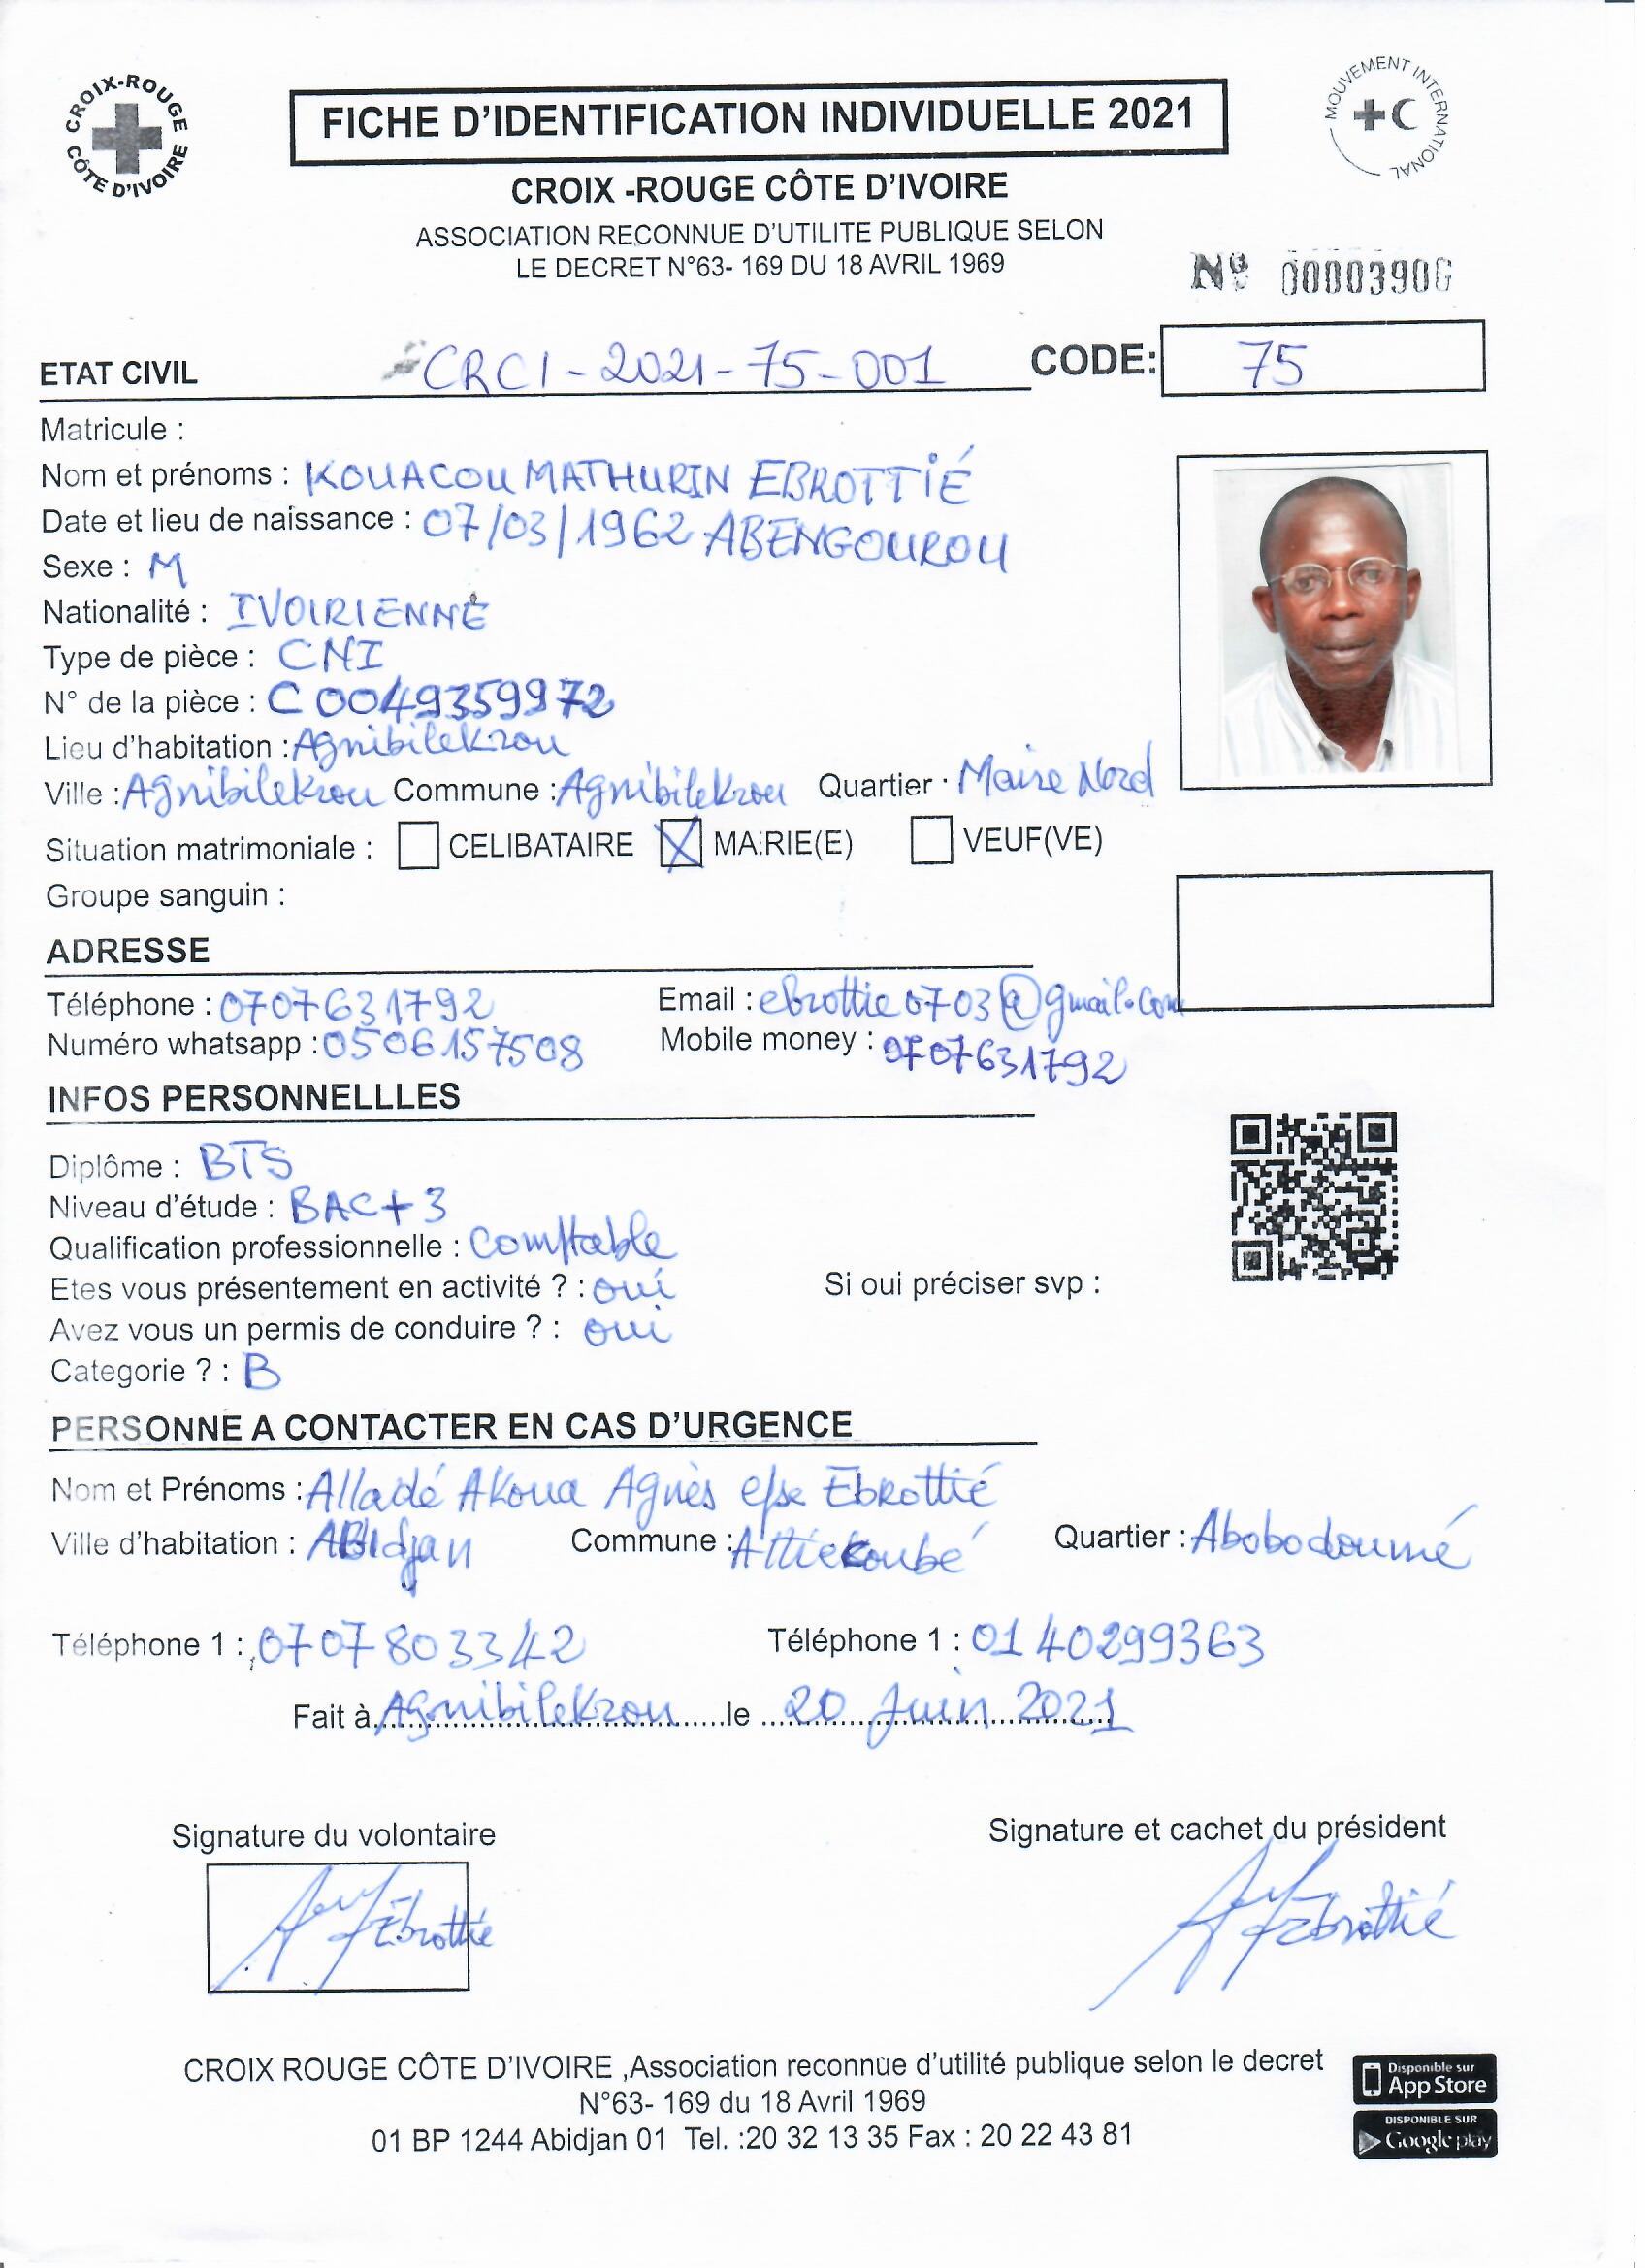 CROIX-ROUGE CÔTE D'IVOIRE
FICHE D'IDENTIFICATION INDIVIDUELLE 2021
MOUVEMENT INTERNATIONAL
CROIX -ROUGE CÔTE D'IVOIRE
ASSOCIATION RECONNUE D'UTILITE PUBLIQUE SELON
LE DECRET N°63- 169 DU 18 AVRIL 1969
N° 00003906
ETAT CIVIL CRCI-2021-75-001 CODE: 75
Matricule :
Nom et prénoms : KOUACOU MATHURIN EBROTTIÉ
Date et lieu de naissance : 07/03/1962 ABENGOUROU
Sexe : M
Nationalité : IVOIRIENNE
Type de pièce : CNI
N° de la pièce : C 0049359972
Lieu d'habitation : Agnibilekrou
Ville : Agnibilekrou Commune : Agnibilekrou Quartier : Maire Nord
Situation matrimoniale : CELIBATAIRE X MARIE(E) VEUF(VE)
Groupe sanguin :
ADRESSE
Téléphone : 0707631792 Email : ebrottie0703@gmail.com
Numéro whatsapp : 0506157508 Mobile money : 0707631792
INFOS PERSONNELLLES
Diplôme : BTS
Niveau d'étude : BAC+3
Qualification professionnelle : Comptable
Etes vous présentement en activité ? : oui Si oui préciser svp :
Avez vous un permis de conduire ? : oui
Categorie ? : B
PERSONNE A CONTACTER EN CAS D'URGENCE
Nom et Prénoms : Alladé Akoua Agnès epse Ebrottié
Ville d'habitation : ABidjan Commune : Attiekoubé Quartier : Abobodoumé
Téléphone 1 : 0707803342 Téléphone 1 : 0140299363
Fait à Agnibilekrou le 20 Juin 2021
Signature du volontaire Signature et cachet du président
Ebrottié Ebrottié
CROIX ROUGE CÔTE D'IVOIRE ,Association reconnue d'utilité publique selon le decret
N°63- 169 du 18 Avril 1969
01 BP 1244 Abidjan 01 Tel. :20 32 13 35 Fax : 20 22 43 81
Disponible sur
App Store
DISPONIBLE SUR
Google play